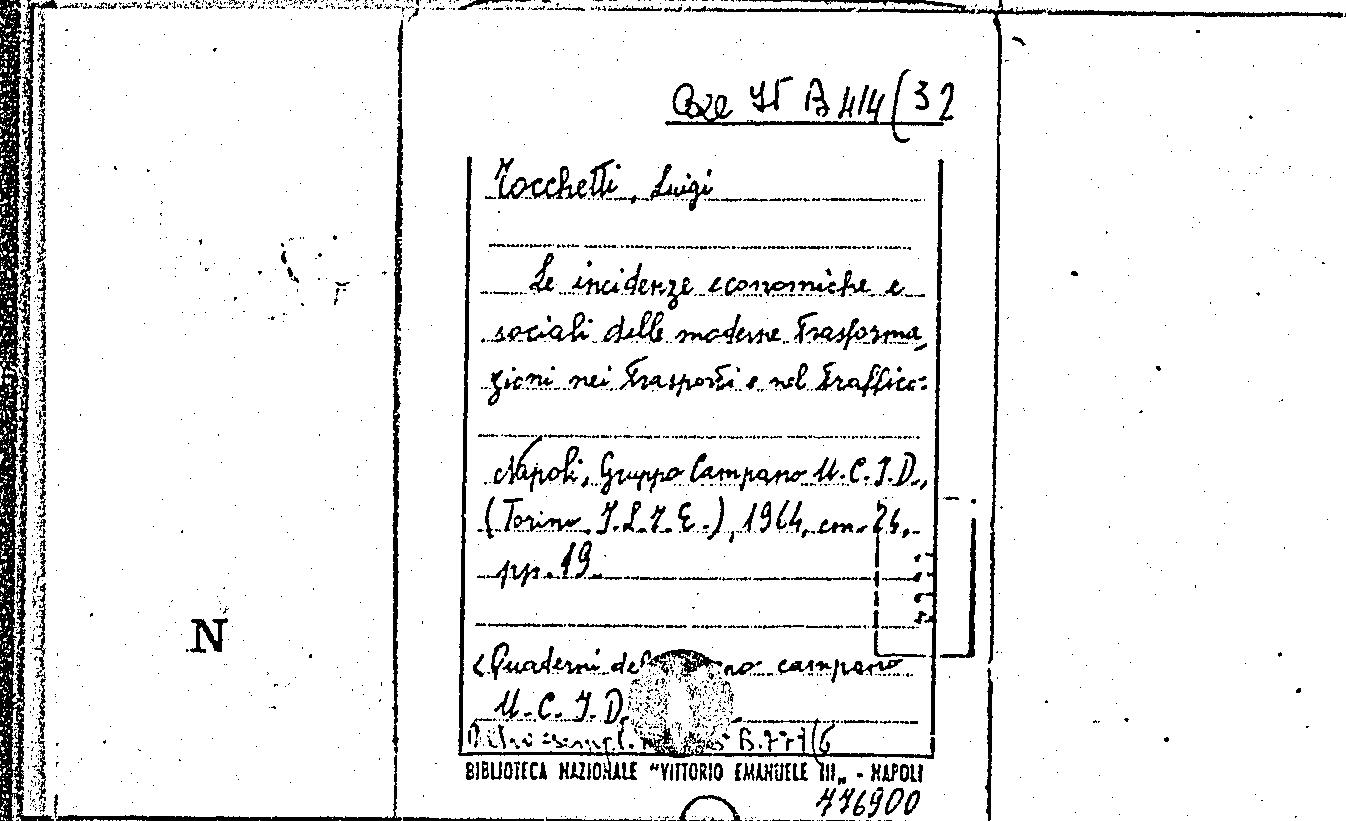 B 414 (32
Tocchetti, Luigi
Le incidenze economiche e
sociali delle moderne trasforma,
zioni nei trasporti e nel traffico:
Napoli, Gruppo Campano U.C.I.D.,
(Torino, I.L.T.E.), 1964, cm. 24,
pp. 19.
N
(Quaderni del campano
U.C.I.D.
BIBLIOTECA NAZIONALE "VITTORIO EMANUELE III„ - NAPOLI
476900